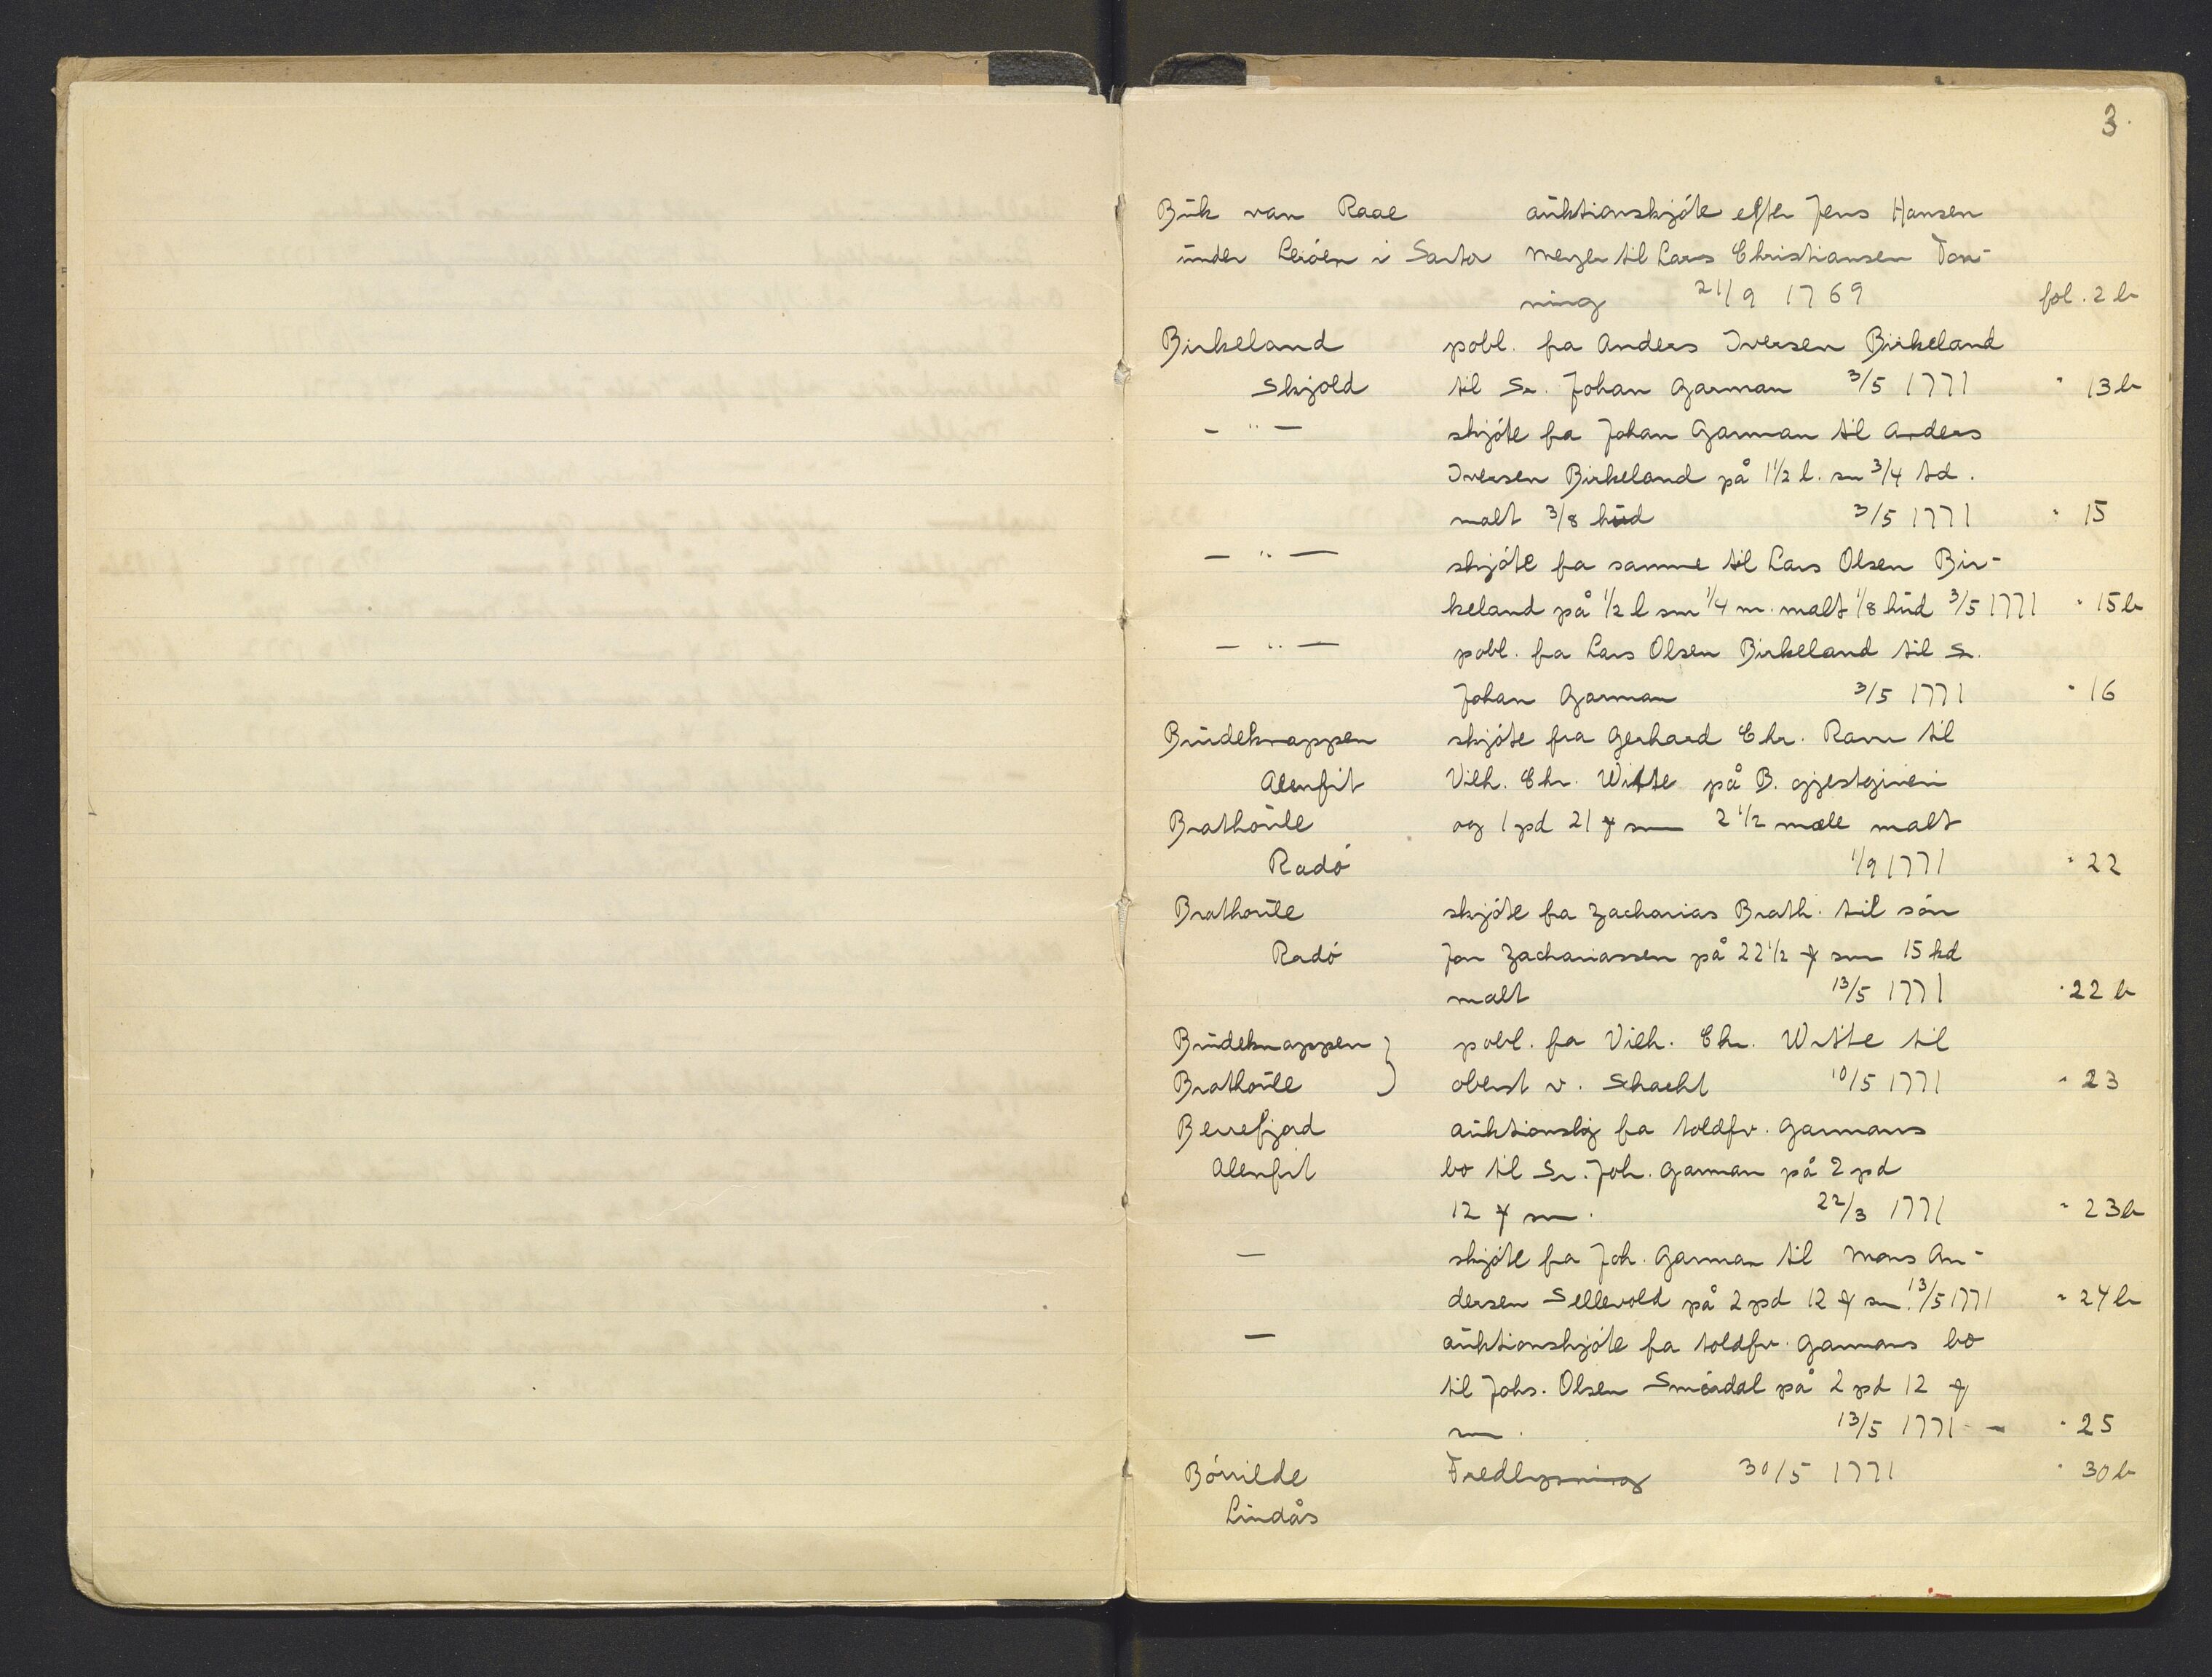 3.
Buk van Raae auktionskjöte efter Jens Hansen
under Leröen i Sartor Meyer til Lars Christiansen Fon-
ning 21/9 1769 fol. 2 b
Birkeland pobl. fra Anders Iversen Birkeland
Skjold til Sr. Johan Garman 3/5 1771 " 13 b
- " - skjöte fra Johan Garman til Anders
Iversen Birkeland på 1 1/2 l. sm 3/4 td.
malt 3/8 hud 3/5 1771 " 15
- " - skjöte fra samme til Lars Olsen Bir-
keland på 1/2 l sm 1/4 m. malt 1/8 hud 3/5 1771 " 15 b
- " - pobl. fra Lars Olsen Birkeland til Sr.
Johan Garman 3/5 1771 " 16
Brudeknappen skjöte fra Gerhard Chr. Ravn til
Alenfit Vilh. Chr. Witte på B. gjestgiveri
Brathoule og 1 pd 21 ℔ sm 2 1/2 mæle malt
Radö 1/9 1771 " 22
Brathoule skjöte fra Zacharias Brath. til sön
Radö Jon Zachariassen på 22 1/2 ℔ sm 15 kd
malt 13/5 1771 " 22 b
Brudeknappen } pobl. fra Vilh. Chr. Witte til
Brathoule } oberst v. Schacht 10/5 1771 " 23
Berrefjord auktionskj fra toldfv. Garmans
Alenfit bo til Sr. Joh. Garman på 2 pd
12 ℔ sm. 22/3 1771 " 23 b
- skjöte fra Joh. Garman til Mons An-
dersen Sellevold på 2 pd 12 ℔ sm. 13/5 1771 " 24 b
- auktionskjöte fra toldfv. Garmans bo
til Johs. Olsen Smördal på 2 pd 12 ℔
sm. 13/5 1771 - " 25
Börrilde Fredlysning 30/5 1771 " 30 b
Lindås